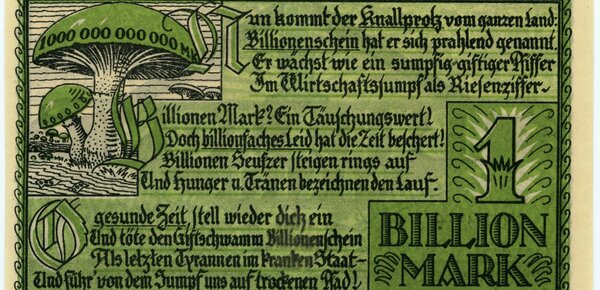 1000 000 000 000 M
Nun kommt der Knallprotz vom ganzen Land:
Billionenschein hat er sich prahlend genannt.
Er wächst wie ein sumpfig-giftiger Pfiffer
Im Wirtschaftssumpf als Riesenziffer-
Billionen Mark? Ein Täuschungswert!
Doch billionfaches Leid hat die Zeit beschert!
Billionen Seufzer steigen rings auf
Und Hunger u. Tränen bezeichnen den Lauf-
O gesunde Zeit stell wieder dich ein
Und töte den Giftschwamm Billionenschein
Als letzten Tyrannen im kranken Staat-
Und führ' von dem Sumpf uns auf trockenen Pfad!
1
BILLION
MARK